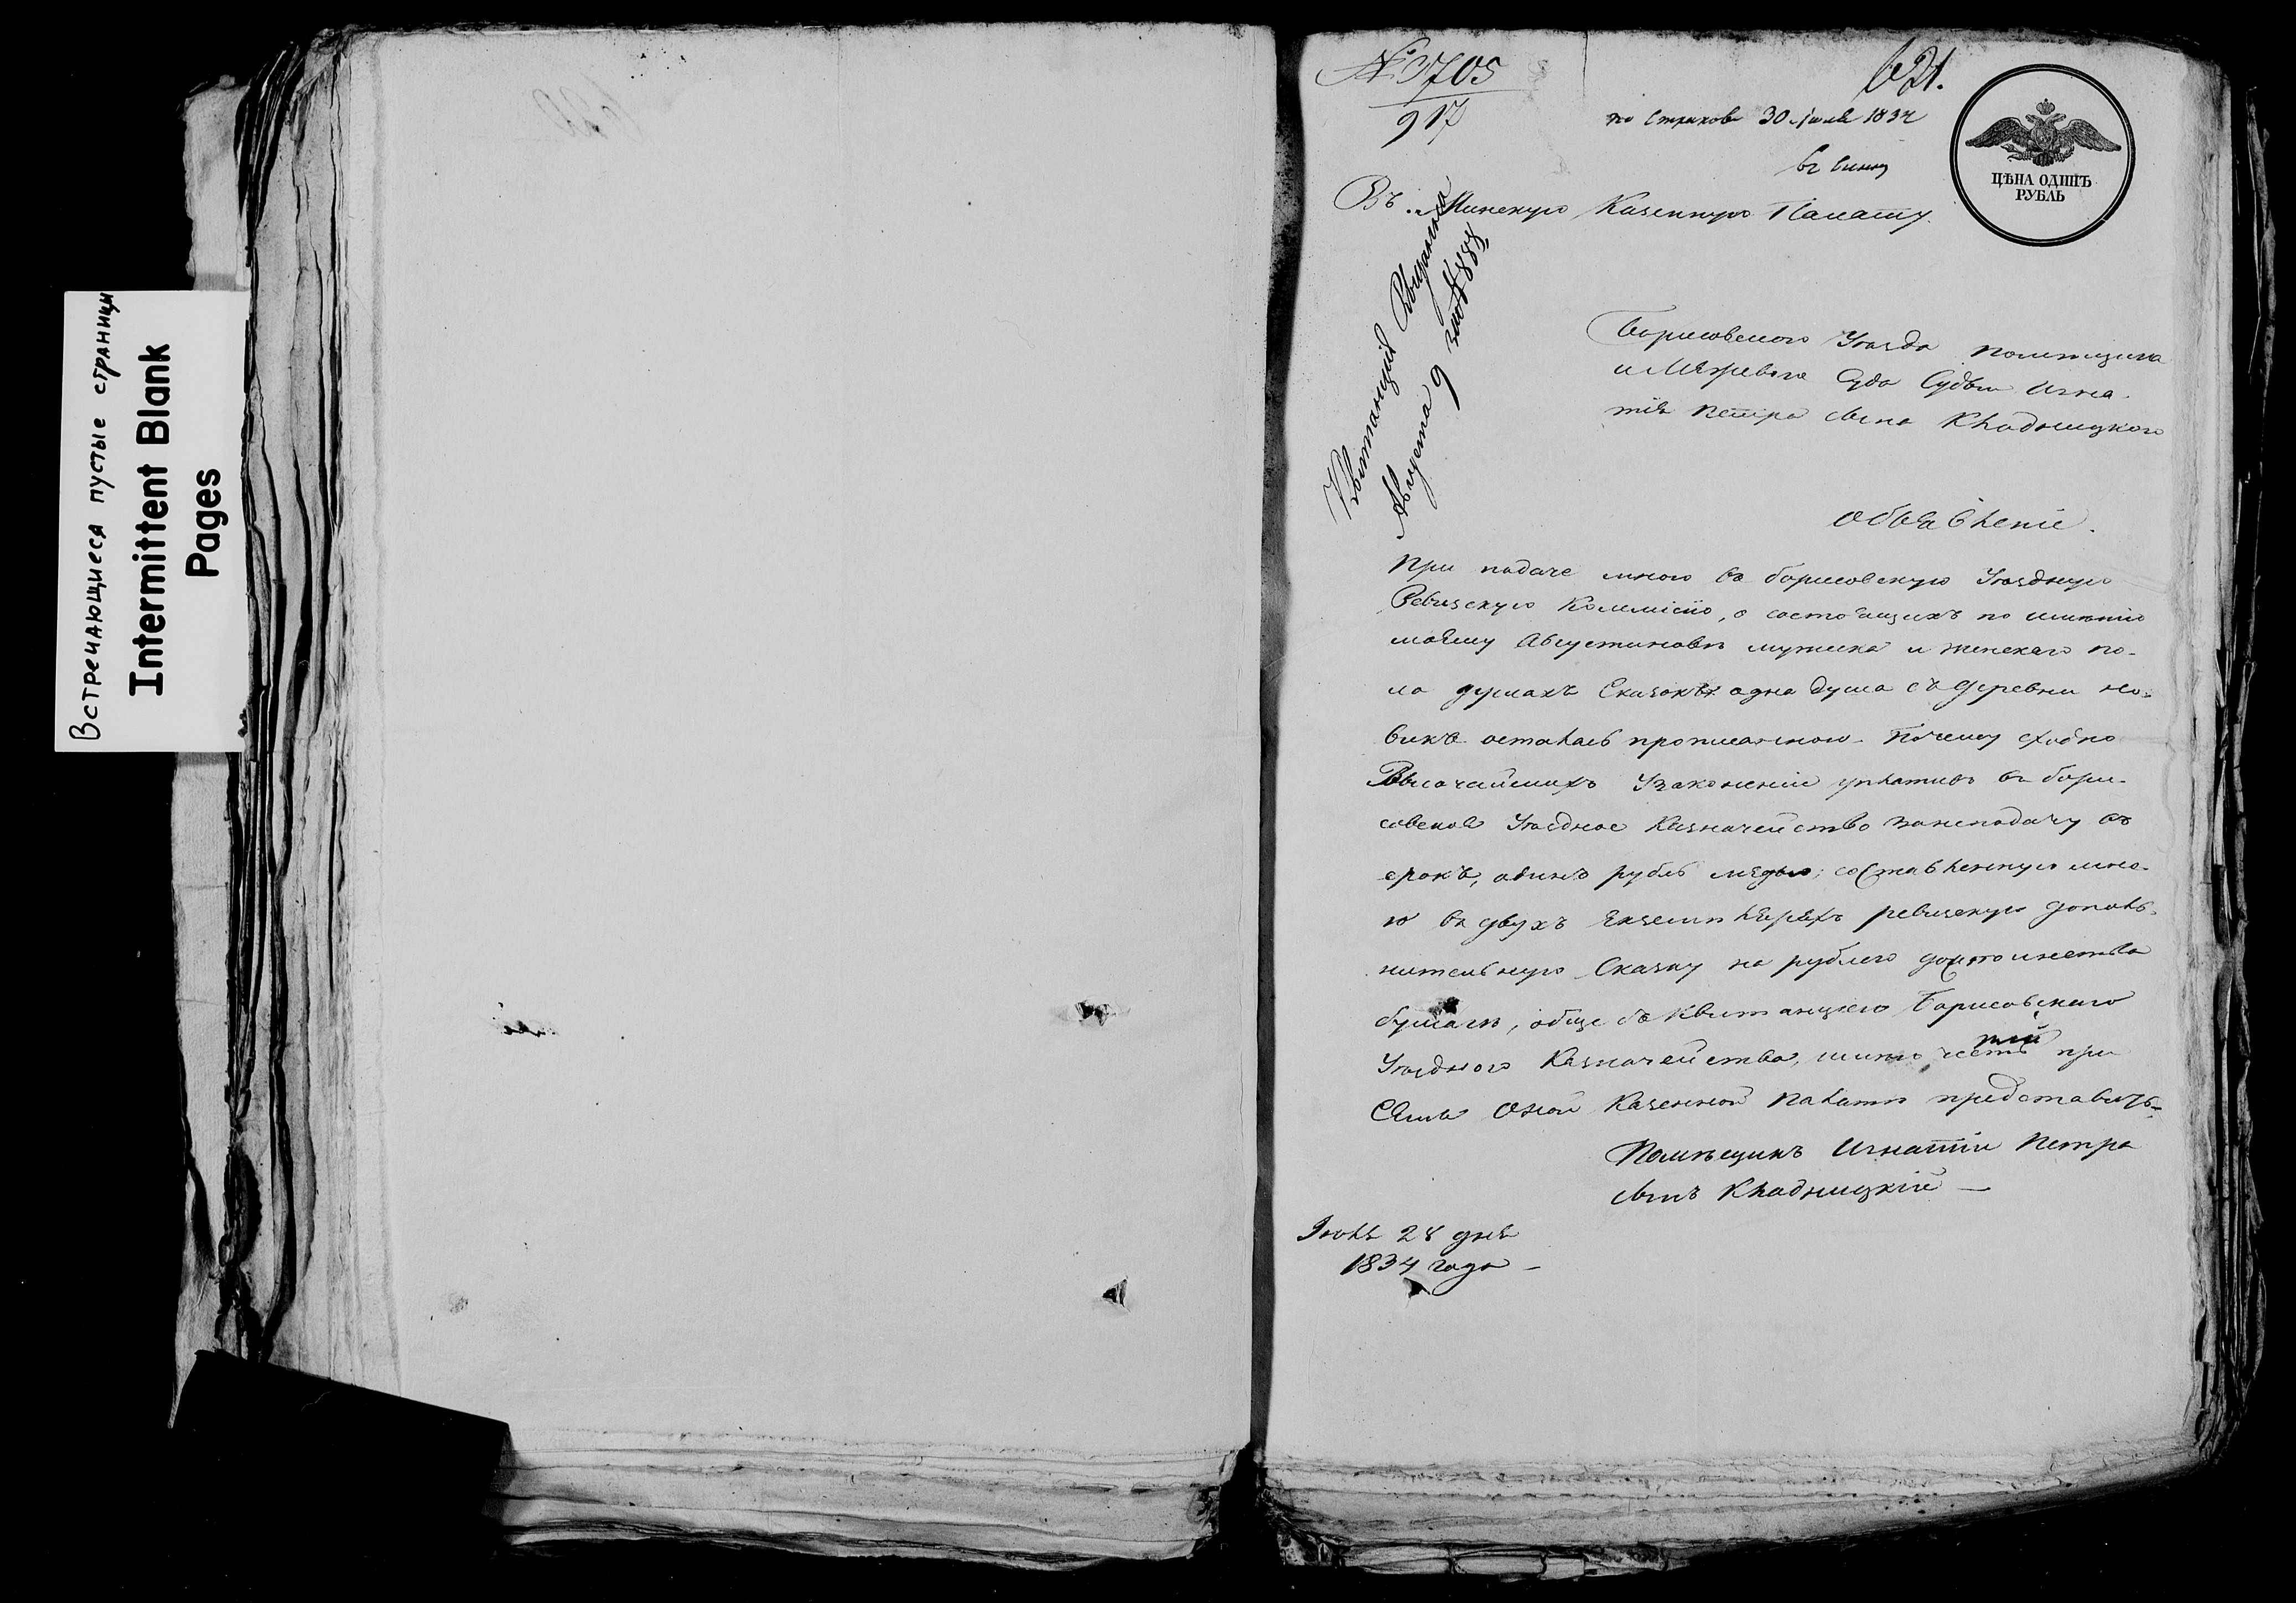 Встречающиеся пустые страницы
Intermittent Blank
Pages
№ 3705
917
621.
30 Іюля 1834
ЦѢНА ОДИНЪ
РУБЛЬ
Въ Минскую Казенную Палату.
Квитанція Выдана
Августа 9 888
Борисовского Уѣзда помѣщика
и Межевого Суда Судьи Игна-
тія Петра сына Кладницкого
Объявленіе.
При подаче мною въ борисовскую Уѣздную
Ревизскую Коммісію, о состоящихъ по имѣнію
моѣму Августиновѣ мужска и женскаго по-
ла душахъ Сказокъ одна душа съ деревни но-
викъ осталась прописанною. Почему сходно
Высочайшихъ Узаконеніи уплативъ въ бори-
совское Уѣздное Казначейство занеподачу въ
срокъ, одинъ рубль медью, составленную мно-
ю въ двухъ Екземплярахъ ревизскую дополь-
нительную Сказку на рублего достоинства
бумагѣ, обще съ квитанціею Борисовскаго
Уѣздного Казначейства, имѣю честь при
семъ Оной Казенной Палатѣ представить
Помѣщикъ Игнатіи Петра
сынъ Кладницкій —
Іюля 28 дня
1834 года —